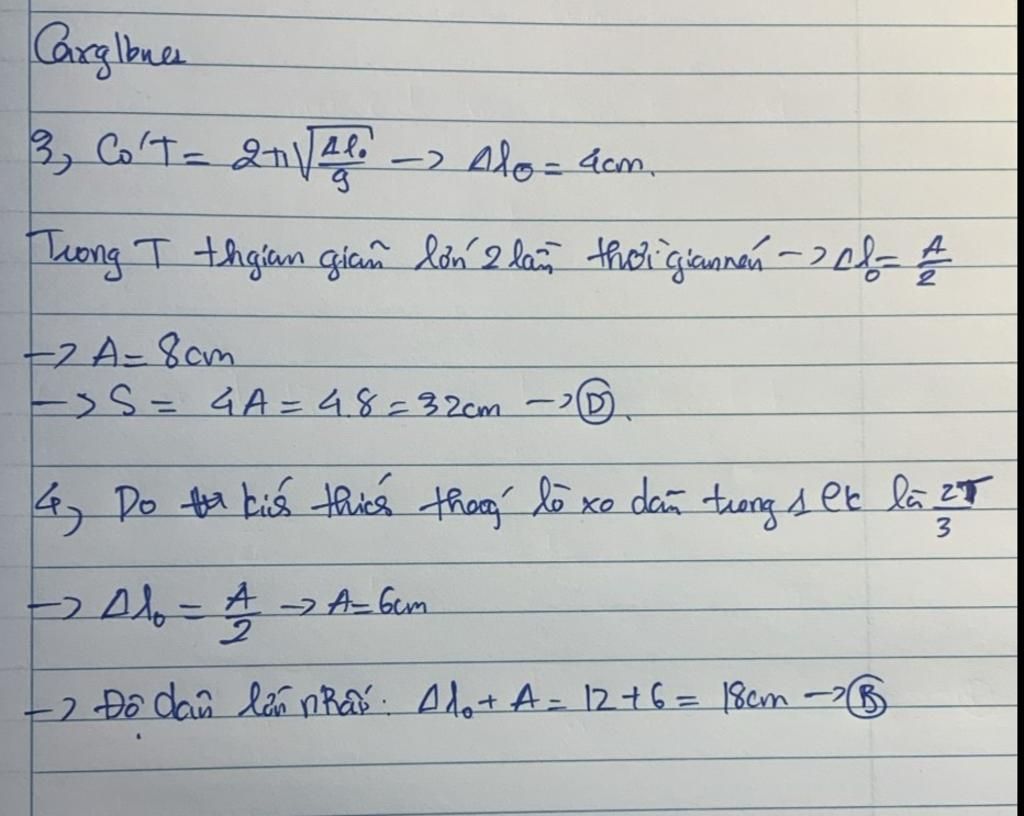 Carglbnes
3, Có T = 2π√(Δl₀/g) → Δl₀ = 4cm.
Trong T thgian giãn lớn 2 lần thời gian nén → Δl₀ = A/2
→ A = 8cm
→ S = 4A = 4.8 = 32cm → Ⓓ.
4, Do kiś thićs thoǵ lò xo dãn trong 1 ck là 2T/3
→ Δl₀ = A/2 → A = 6cm
→ Độ dãn lớn nhất: Δl₀ + A = 12 + 6 = 18cm → Ⓑ